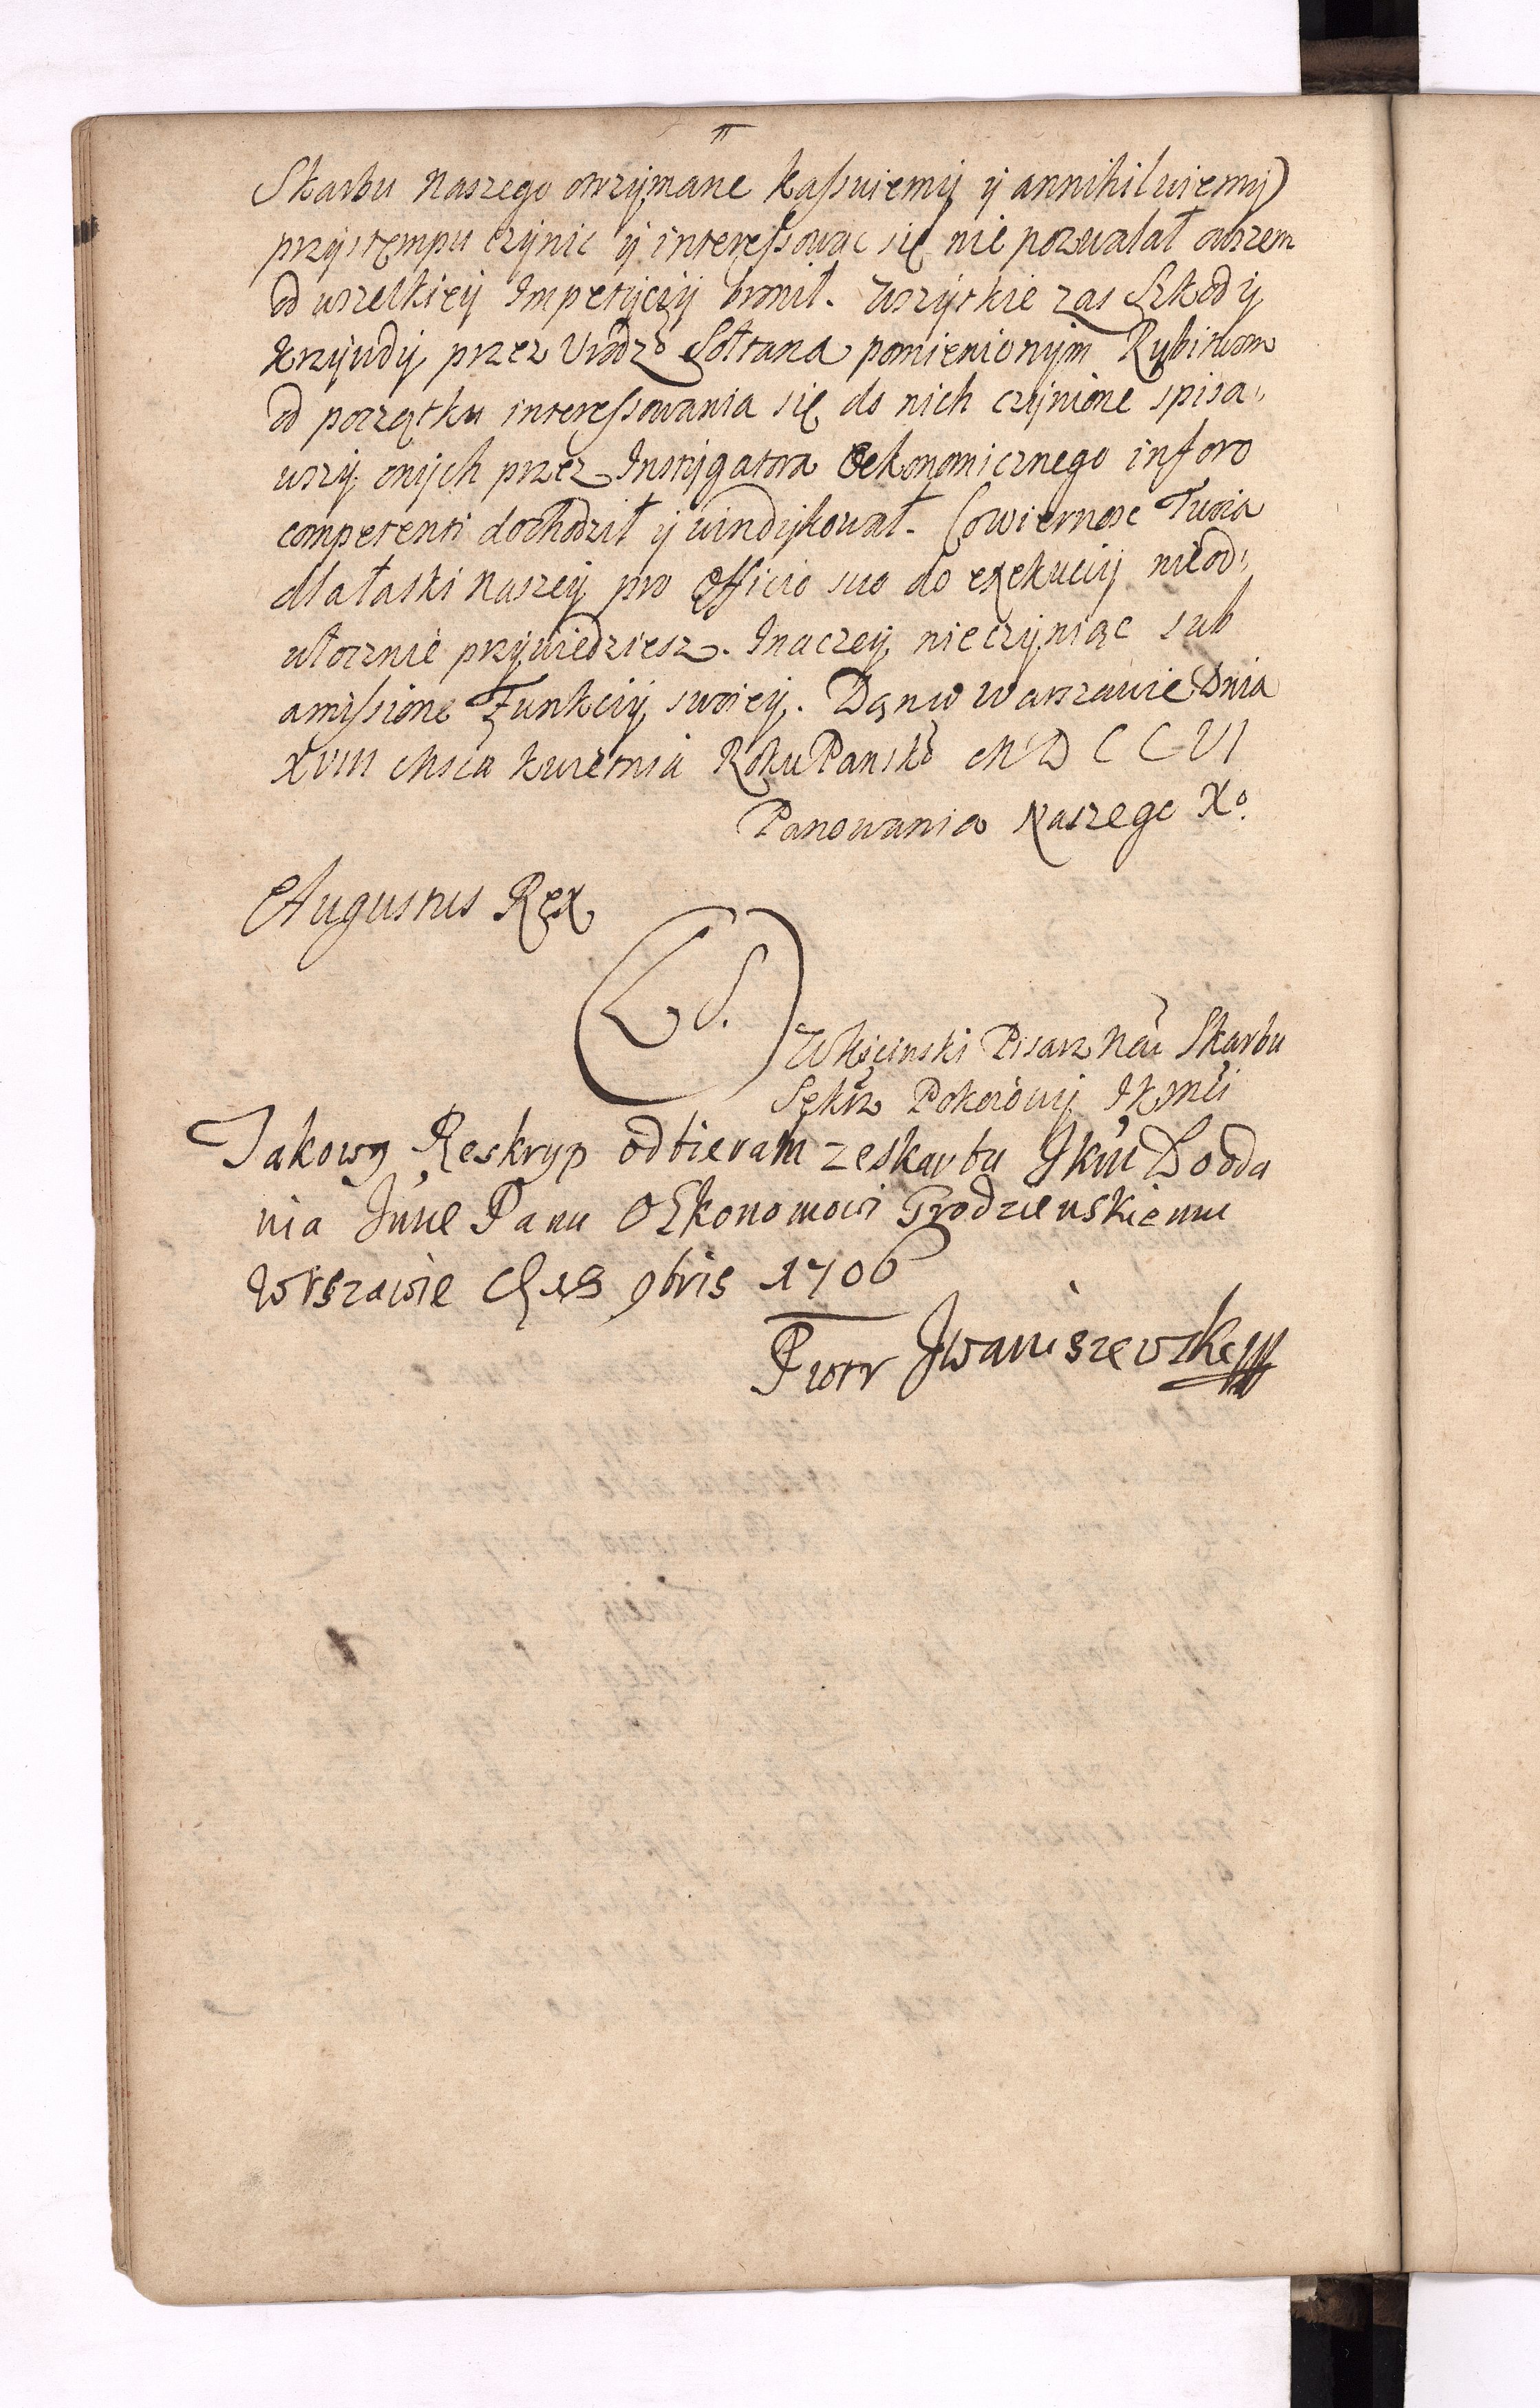 Skarbu Naszego otrzÿmane kaſsuiemÿ ÿ annihiluiemÿ)
przÿstęmpu czÿnic ÿ intereſsowac się nie pozwalał owszem
od wszelkieÿ Impetÿcÿÿ bronił. Wszÿtkie zas Szkodÿ
Krzÿwdÿ przez Urodzo Sołtana pomienionÿm Rybitwom
od początku intereſsowania się do nich czÿnione spisa=
wszÿ onÿch przez Instÿgatora Oekonomicznego in foro
competenti dochodził ÿ windÿkował. Co wiernosc Twoia
dla łaski Naszeÿ pro Officio suo do exekucÿÿ nieod=
włocznie przÿwiedziesz. Inaczeÿ nieczÿniąc sub
amiſsione Funkcÿÿ swoieÿ. Dąn w Warszawie Dnia
XVIII Msca Kwietnia Roku Pansko MDCCVI
Panowania Naszego Xo.
Augustus Rex
L S.
Pisarz Skarbu
Sekrz Pokoiowÿ JKMci
Takowy Reskryp odbieram ze skarbu JKM Do odda
nia Panu OEkonomowi Grodzienskiemu
W Warszawie 18 9bris 1706
Piotr Iwaniszewski